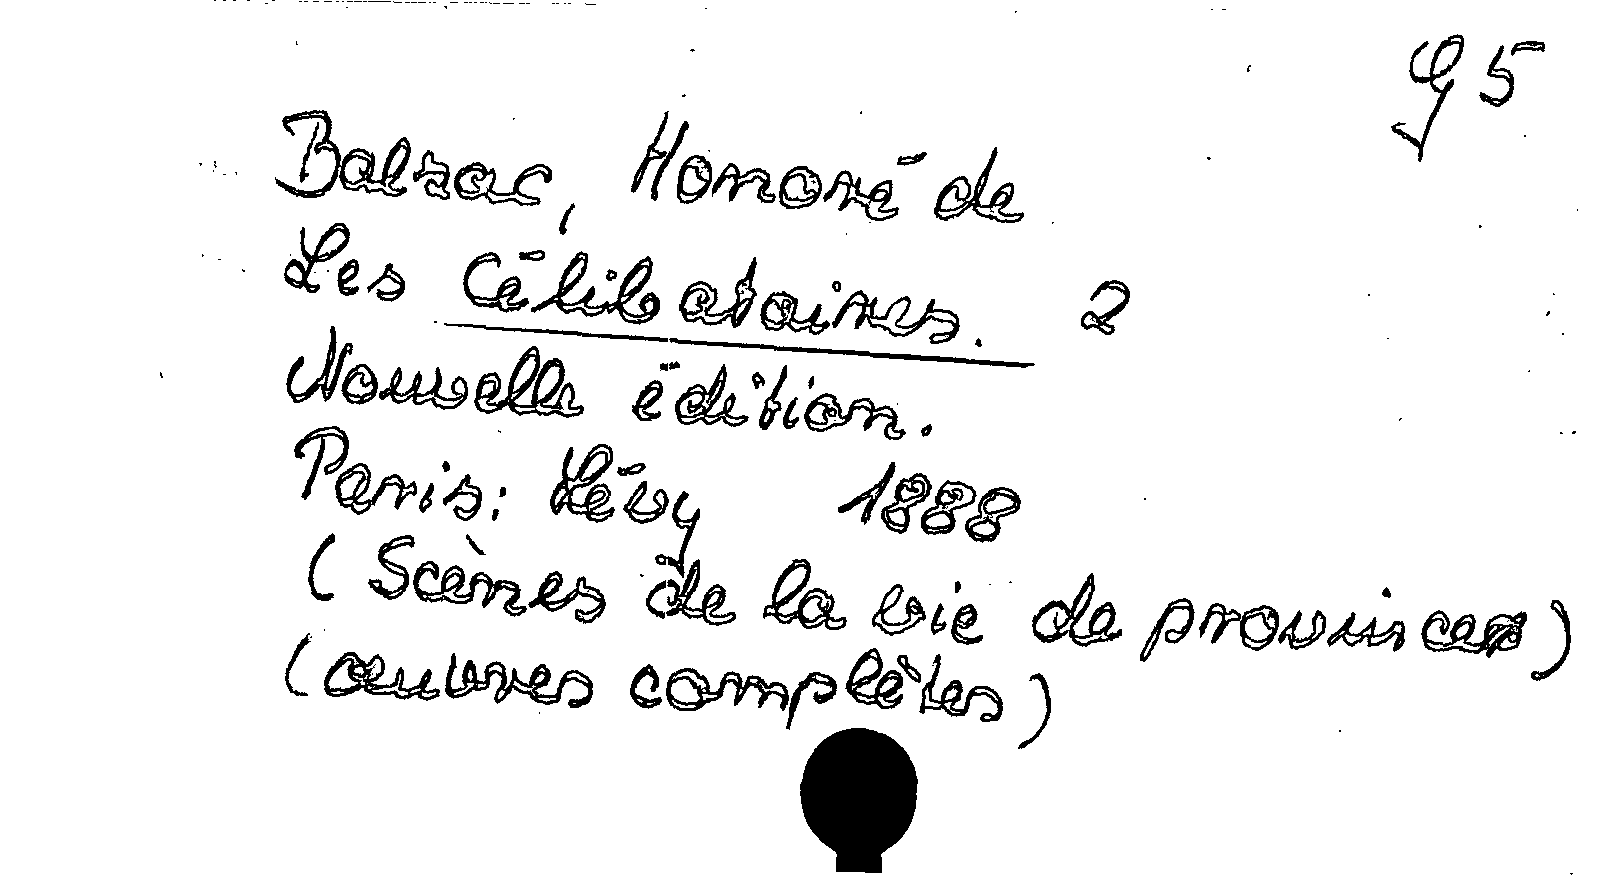 G 5
Balzac, Honoré de
Les Célibataires. 2
Nouvelle édition.
Paris: Lévy 1888
(Scènes de la vie de province)
(œuvres complètes)